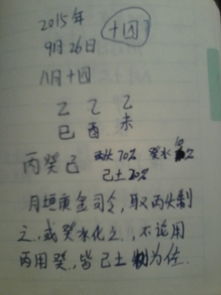 2015年 十四
9月26日
八月十四
乙 乙 乙
巳 酉 未
丙癸己 丙火70% 癸水10%
己土20%
月垣庚金司令，取丙火制
之，或癸水化之，不论用
丙用癸，皆己土为佐.